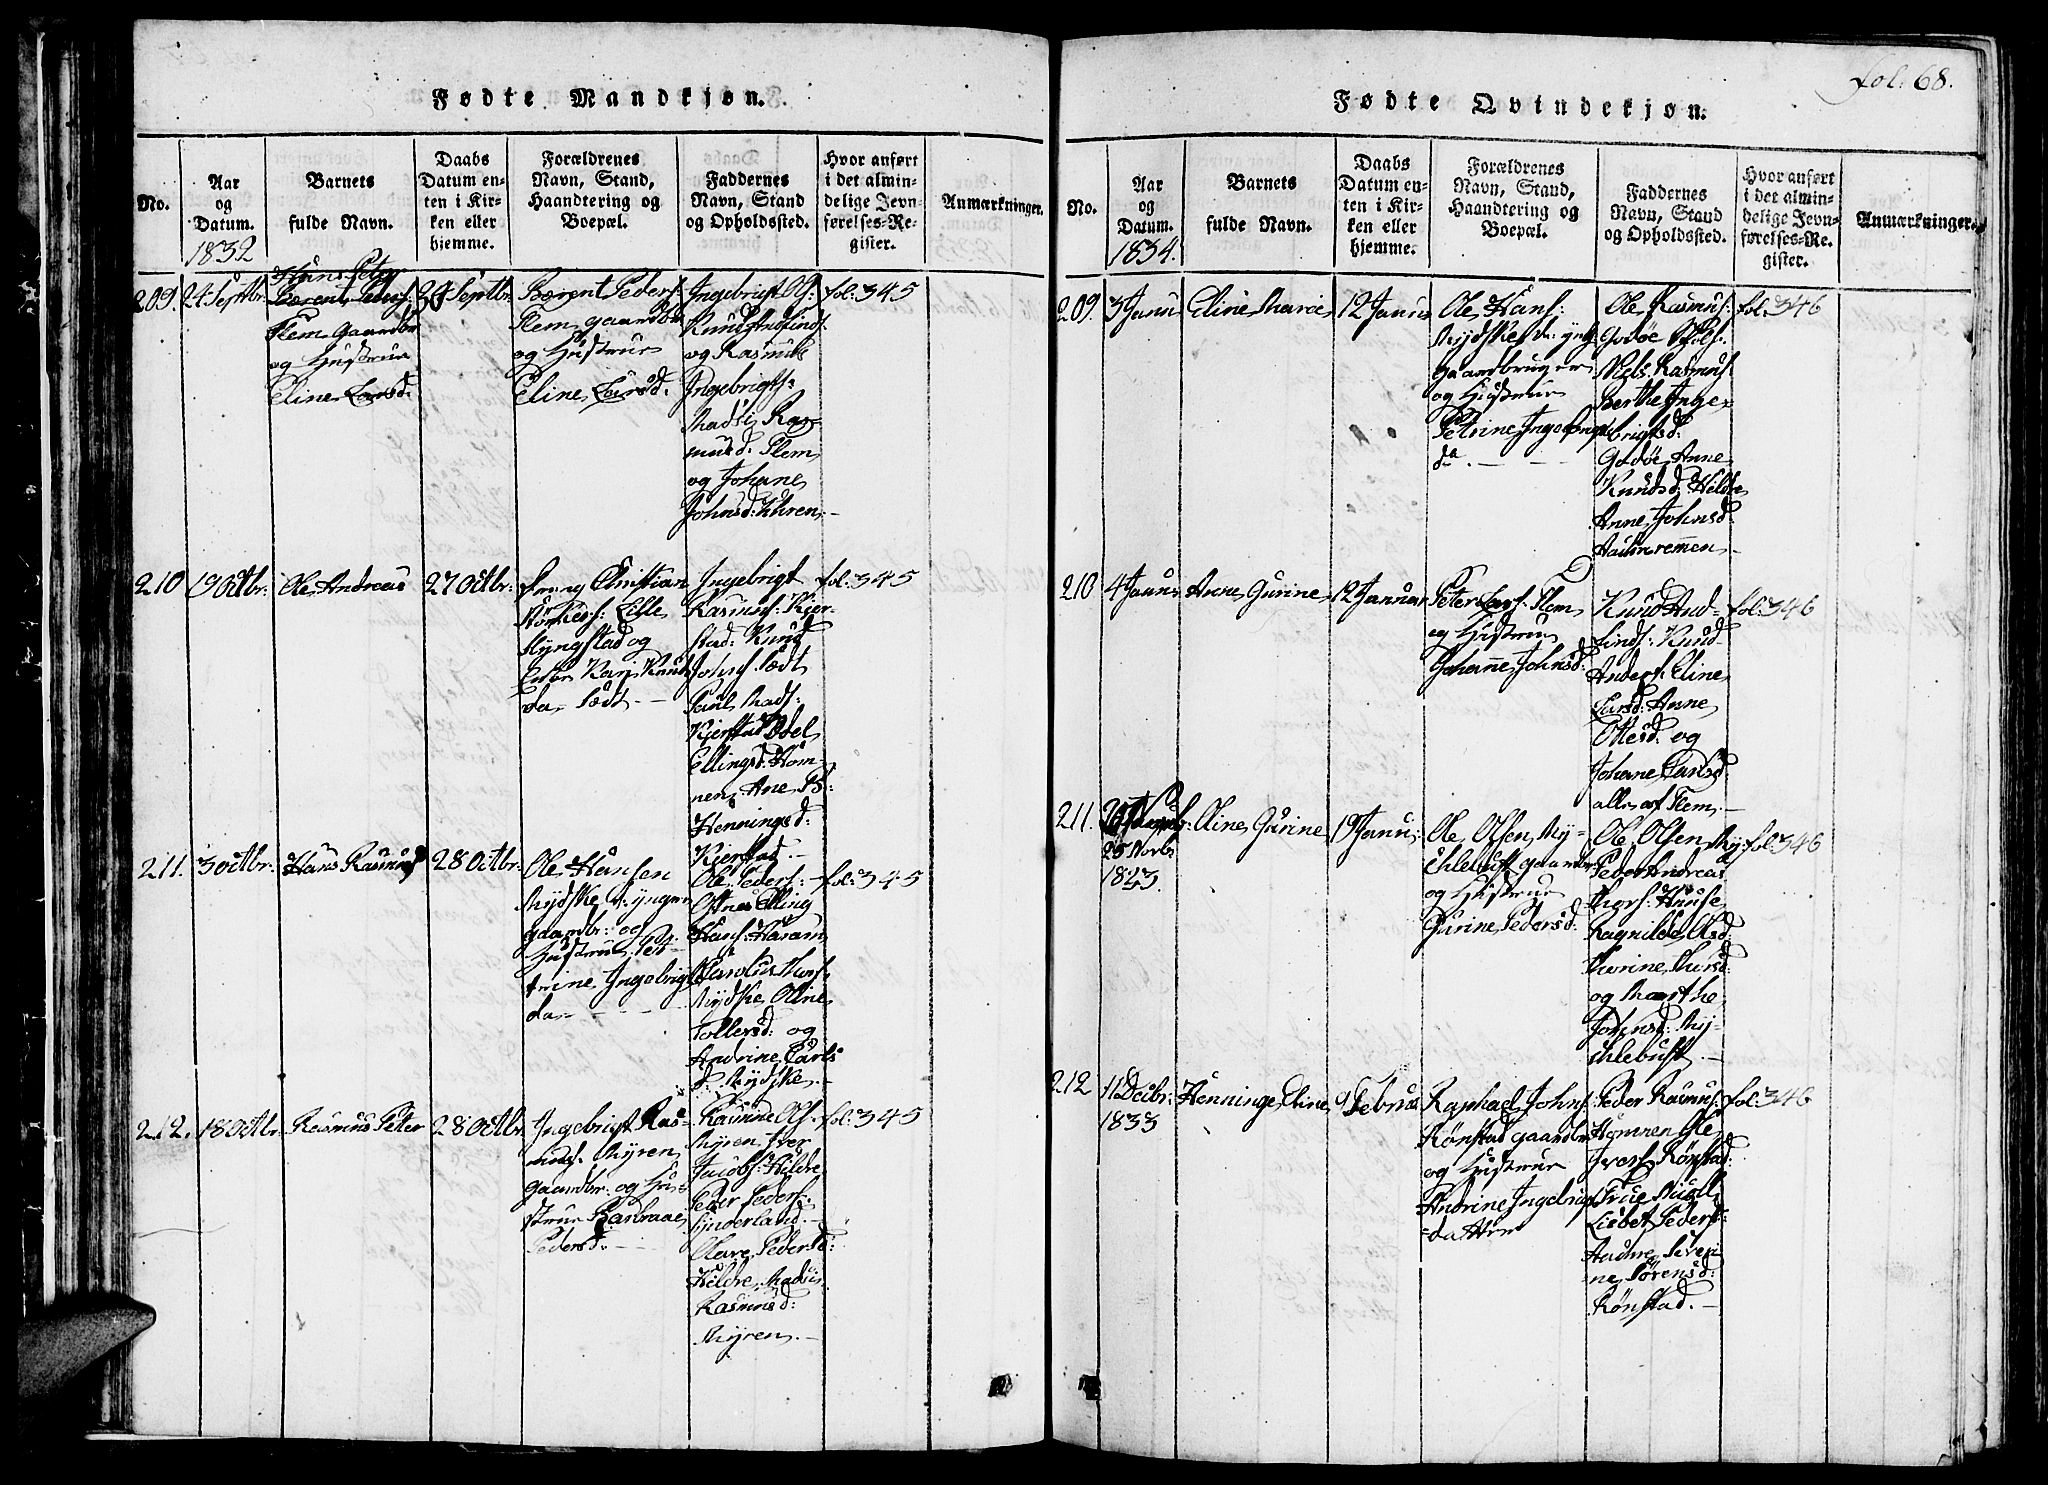 fol: 68.
Fødte Mandkjøn.
No.
Aar
og
Datum.
1832
Barnets
fulde Navn.
Daabs
Datum en-
ten i Kir-
ken eller
hjemme.
Forældrenes
Navn, Stand,
Haandtering og
Boepæl.
Faddernes
Navn, Stand
og Opholdssted.
Hvor anført
i det almin-
delige Jevn-
førelses-Re-
gister.
Anmærkninger.
209.
24 Septbr.
Hans Peter
Bærent Peders:
Flem gaardbr
og Hustrue
Eline Larsd.
Septbr.
Bærent Peders
Flem gaardbr
og Hustrue
Eline Larsd.
Ingebrigt Ols:
Knud
og Rasmus
Ingebrigts:
Madsi Ras-
musd: Flem
og Johane
Johnsd:
fol: 345
210
19 Octbr:
Ole Andreas
27 Octbr:
Christian
Lille
og
Kari Knuds
da
Ingebrigt
Rasmus: Kjer-
stad: Knud
Johns:
Mads:
Kjerstad
Ellingsd: Hom-
nen, Ane
Henningsd:
Kjerstad.
fol: 345
211.
3 Octbr:
Hans Rasmus
28 Octbr:
Ole Hansen
Mydske d: yngre
gaardbr: og
Hustrue Pet-
trine Ingebrigts
da
Ole Peders:
Elling
Hans: Haram
Carolus Thors:
Mydske, Oline
Tollevsd: og
Andrine Carls
d: Mydske.
fol: 345
212.
18 Octbr:
Rasmus Peter
28 Octbr:
Ingebrigt Ras-
mus: Myren
Gaardbr: og Hu-
strue Barbraae
Pedersd:
Rasmus Ols:
Myren, Iver
Jacobs: Hildre
Peder Peders:
Synderland
Olave Pedersd:
Hildre, Madsi
Rasmusd:
Myren.
fol: 345
Fødte Qvindekjøn.
No.
Aar
og
Datum.
1834.
Barnets
fulde Navn.
Daabs
Datum en-
ten i Kir-
ken eller
hjemme.
Forældrenes
Navn, Stand,
Haandtering og
Boepæl.
Faddernes
Navn, Stand
og Opholdssted.
Hvor anført
i det almin-
delige Jevn-
førelses-Re-
gister.
Anmærkninger.
209.
3 Janu
Eline Maria
12 Janu
Ole Hans:
Mydske d: yng
Gaardbruger
og Hustrue
Petrine Ingebrigts
da.
Ole Rasmus:
Godøe
Niels Rasmus
Berthe Inge-
brigtsd:
Godøe, Anne
Knudsd: Hildre
Anne Johnsd:
Haunremen
fol: 346
210
4 Janu
Anne Gurine
12 Januar
Peter Lars: Flem
og Hustrue
Johanne Johnsd:
Knud And-
Knud
Anders: Eline
Larsd: Anne
Ottesd: og
Johane Larsd:
alle af Flem.
fol: 346
211.
25 Novbr
1823.
Eline Gurine
19 Janu:
Ole Olsen My-
chlebust gaardbr
og Hustrue
Gurine Pedersd:
Ole Olsen My
Peder Andreas
Thors:
Ragnilde Olsd:
Thorine Thorsd:
og Marthe
Johnsd: My-
chlebust.
fol: 346
212
11 Decbr:
1833
Henninge Eline
9 Februar
Raphael Johns:
Rønstad gaardbr
og Hustrue
Andrine Ingebrigts
datter
Peder Rasmus:
Homnen Ole
Ivers: Rønstad
Frue
Lisbet Peders:
Severi
ne Sørensd:
Rønstad.
fol: 346